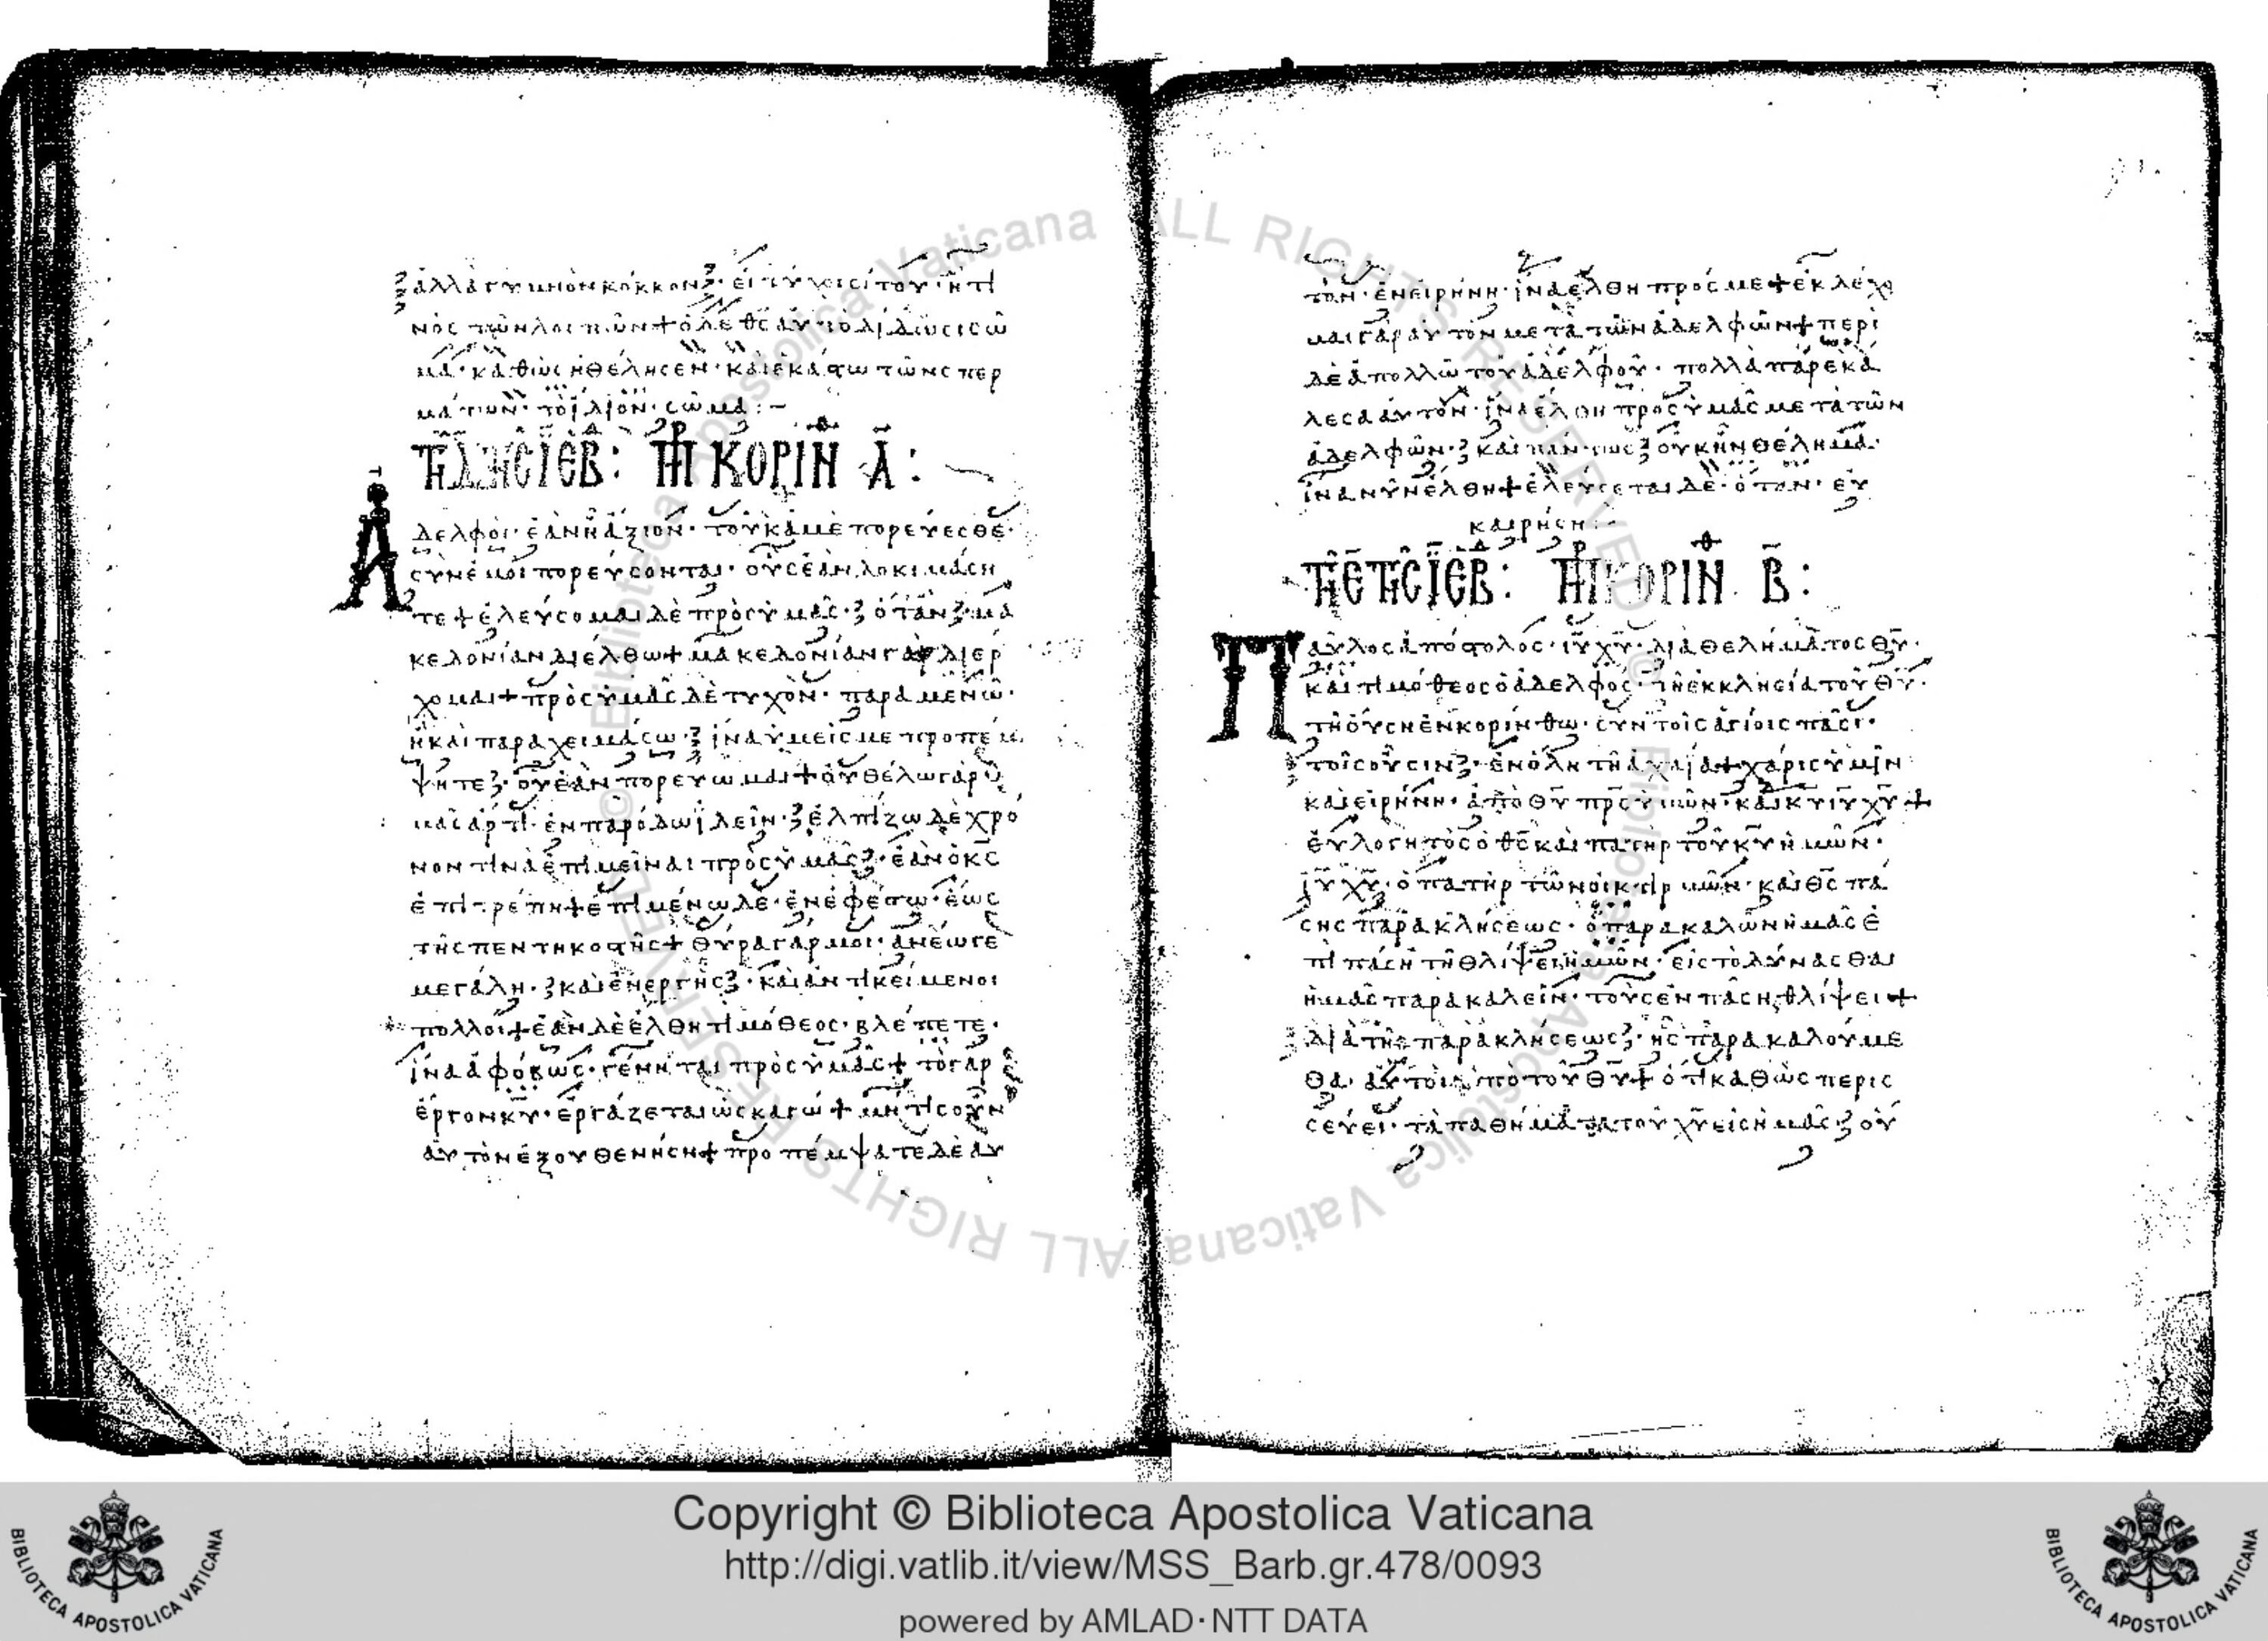 ἀλλὰ γυμνὸν κόκκον· εἰ τύχοι σίτου· ἤ τι
νὸς τῶν λοιπῶν + ὁ δὲ θς αὐτῶ δίδωσι σῶ
μα· καθὼς ἠθέλησεν· καὶ ἑκάστω τῶν σπερ
μάτων· τὸ ἴδιον· σῶμα :–
ΚΟΡΙΝ Α :
Ἀδελφοί· ἐὰν ἦ ἄξιον· τοῦ κἀμὲ πορεύεσθε·
σὺν ἐμοὶ πορεύσονται· οὓς ἐὰν δοκιμάση
τε + ἐλεύσομαι δὲ πρὸς ὑμᾶς· ὅταν μα
κεδονίαν διέλθω + μακεδονίαν γὰρ διέρ
χομαι + πρὸς ὑμᾶς δὲ τυχὸν· παραμενῶ·
ἢ καὶ παραχειμάσω· ἵνα ὑμεῖς με προπέμ
ψητε· οὗ ἐὰν πορεύωμαι + οὐ θέλω γὰρ ὑ
μᾶς ἄρτι· ἐν παρόδω ἰδεῖν· ἐλπίζω δὲ χρό
νον τινὰ ἐπιμεῖναι πρὸς ὑμᾶς· ἐὰν ὁ κς
ἐπιτρέπη + ἐπιμένω δὲ· ἐν ἐφέσω· ἕως
τῆς πεντηκοστῆς + θύρα γάρ μοι· ἀνέωγε
μεγάλη· καὶ ἐνεργὴς· καὶ ἀντικείμενοι
πολλοί + ἐὰν δὲ ἔλθη τιμόθεος· βλέπετε·
ἵνα ἀφόβως· γένηται πρὸς ὑμᾶς + τὸ γὰρ
ἔργον κυ· ἐργάζεται ὡς κἀγώ + μή τις οὖν
αὐτὸν ἐξουθενήση + προπέμψατε δὲ αὐ
τὸν· ἐν εἰρήνη· ἵνα ἔλθη πρός με + ἐκδέχο
μαι γὰρ αὐτὸν μετὰ τῶν ἀδελφῶν + περὶ
δὲ ἀπολλὼ τοῦ ἀδελφοῦ· πολλὰ παρεκά
λεσα αὐτὸν· ἵνα ἔλθη πρὸς ὑμᾶς μετὰ τῶν
ἀδελφῶν· καὶ πάντως οὐκ ἦν θέλημα·
ἵνα νῦν ἔλθη + ἐλεύσεται δὲ· ὅταν· εὐ
καιρήση :–
ΚΟΡΙΝ Β :
Παῦλος ἀπόστολος· ιυ χυ· διὰ θελήματος θυ·
καὶ τιμόθεος ὁ ἀδελφὸς· τῆ ἐκκλησία τοῦ θυ·
τῆ οὔση ἐν κορίνθω· σὺν τοῖς ἁγίοις πᾶσι·
τοῖς οὖσιν· ἐν ὅλη τῆ ἀχαΐα + χάρις ὑμῖν
καὶ εἰρήνη· ἀπὸ θυ πρς ἡμῶν· καὶ κυ ιυ χυ +
εὐλογητὸς ὁ θς καὶ πατὴρ τοῦ κυ ἡμῶν·
ιυ χυ· ὁ πατὴρ τῶν οἰκτιρμῶν· καὶ θς πά
σης παρακλήσεως· ὁ παρακαλῶν ἡμᾶς ἐ
πὶ πάση τῆ θλίψει ἡμῶν· εἰς τὸ δύνασθαι
ἡμᾶς παρακαλεῖν· τοὺς ἐν πάση θλίψει +
διὰ τῆς παρακλήσεως· ἧς παρακαλούμε
θα· αὐτοὶ ὑπὸ τοῦ θυ + ὅτι καθὼς περισ
σεύει· τὰ παθήματα τοῦ χυ εἰς ἡμᾶς· οὕ
Copyright © Biblioteca Apostolica Vaticana
http://digi.vatlib.it/view/MSS_Barb.gr.478/0093
powered by AMLAD·NTT DATA
BIBLIOTECA APOSTOLICA VATICANA
BIBLIOTECA APOSTOLICA VATICANA